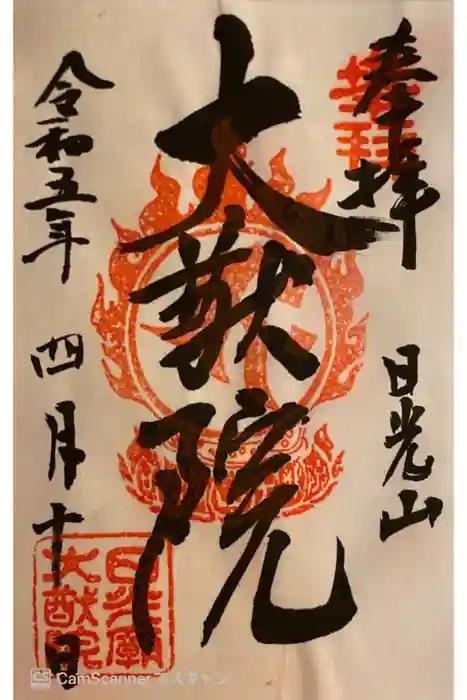 奉拝
日光山
大猷院
令和五年
四月十日
奉拝
日光廟
大猷院
CamScanner でスキャン